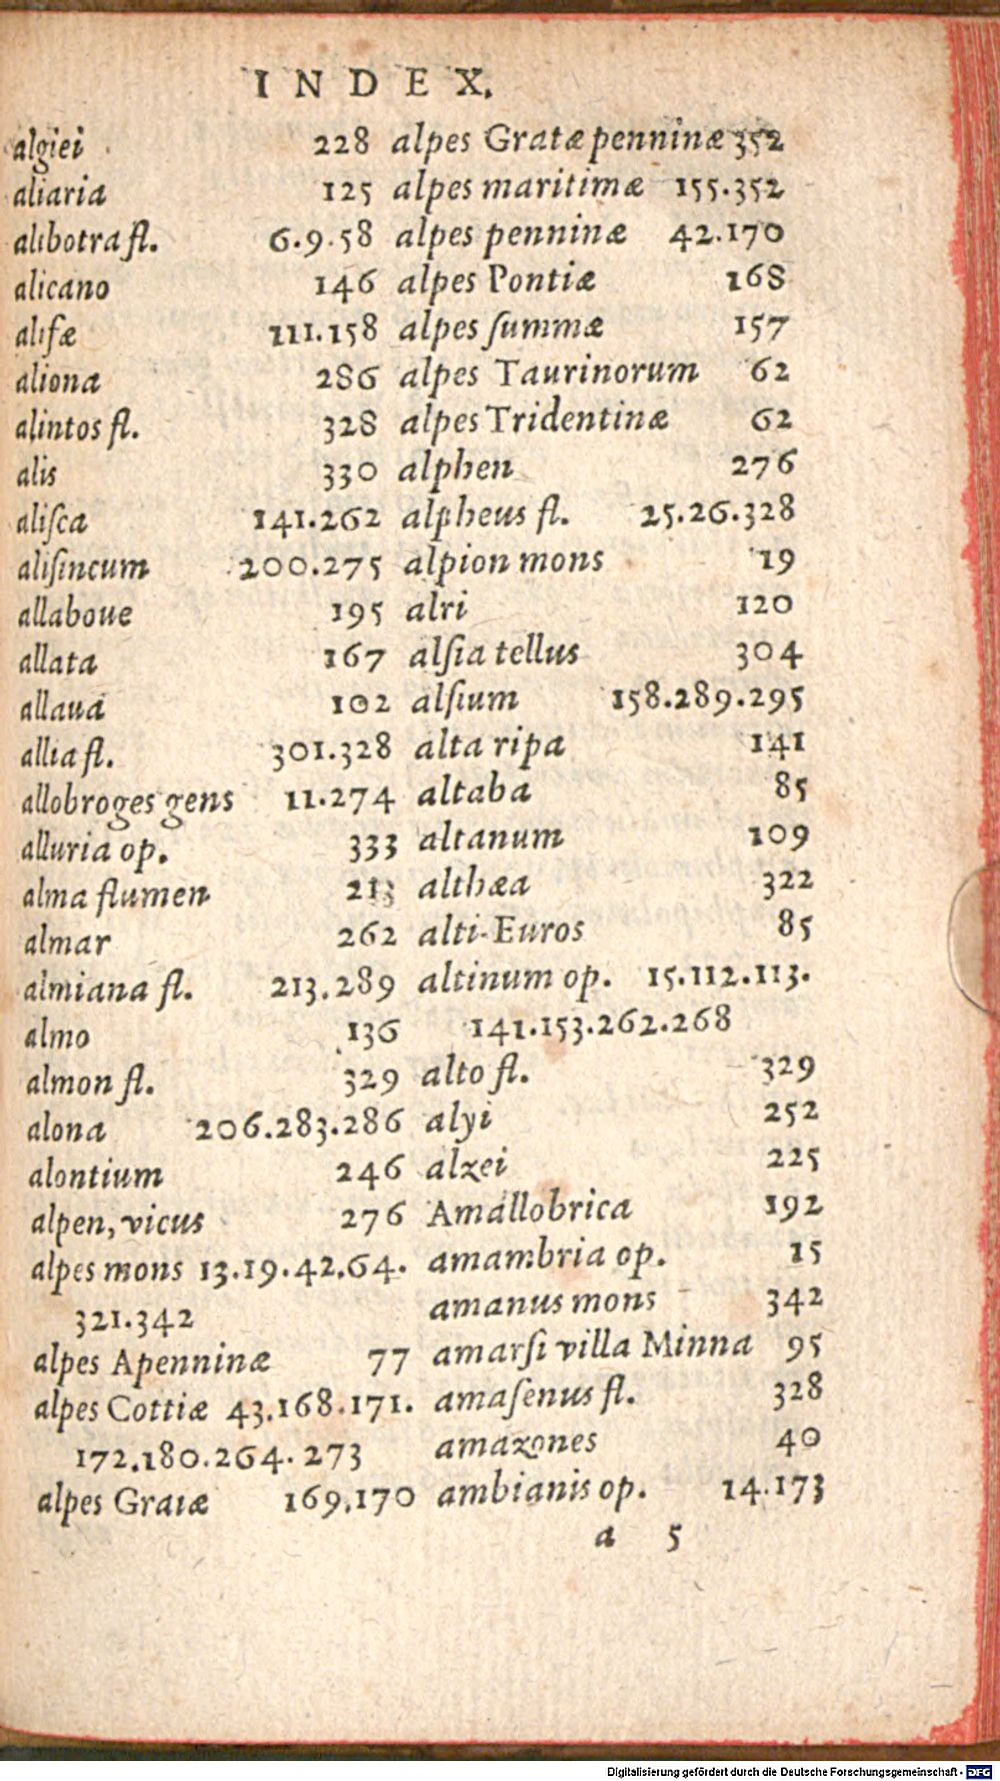 INDEX.
algiei 228
aliaria 125
alibotra fl. 6.9.58
alicano 146
alifæ 111.158
aliona 286
alintos fl. 328
alis 330
aliſca 141.262
aliſincum 200.275
allaboue 195
allata 167
allaua 102
allia fl. 301.328
allobroges gens 11.274
alluria op. 333
alma flumen 213
almar 262
almiana fl. 213.289
almo 136
almon fl. 329
alona 206.283.286
alontium 246
alpen, vicus 276
alpes mons 13.19.42.64.
321.342
alpes Apenninæ 77
alpes Cottiæ 43.168.171.
172.180.264.273
alpes Graiæ 169.170
alpes Gratæ penninæ 352
alpes maritimæ 155.352
alpes penninæ 42.170
alpes Pontiæ 168
alpes ſummæ 157
alpes Taurinorum 62
alpes Tridentinæ 62
alphen 276
alpheus fl. 25.26.328
alpion mons 19
alri 120
alſia tellus 304
alſium 158.289.295
alta ripa 141
altaba 85
altanum 109
althæa 322
alti Euros 85
altinum op. 15.112.113.
141.153.262.268
alto fl. 329
alyi 252
alzei 225
Amallobrica 192
amambria op. 15
amanus mons 342
amarſi villa Minna 95
amaſenus fl. 328
amazones 40
ambianis op. 14.173
a 5
Digitalisierung gefördert durch die Deutsche Forschungsgemeinschaft - DFG